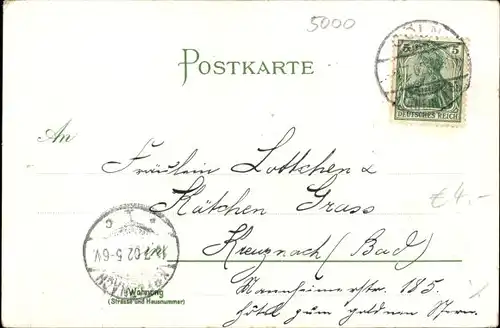 5000
CÖLN
5 5
DEUTSCHES REICH
POSTKARTE
An
Fräulein Lottchen &
Kätchen Grass
€ 4.-
02. 5-6 V.
Kreuznach (Bad)
(Wohnung
(Strasse und Hausnummer)
Mannheimerstr. 185.
hôtel zum goldenen Stern.